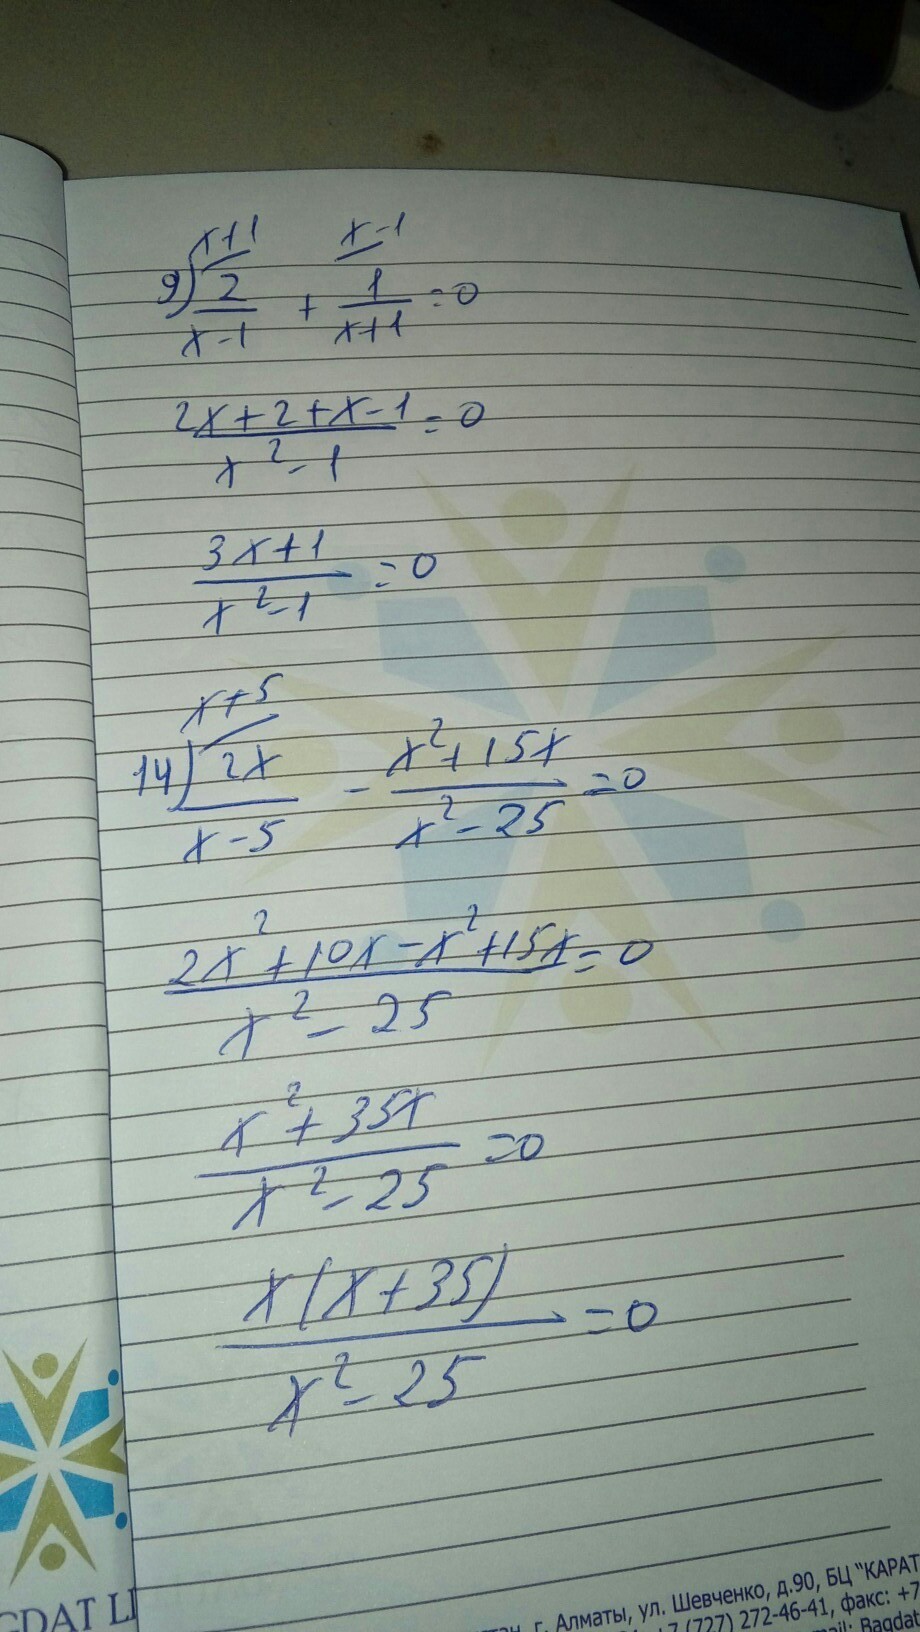 x+1 x-1
9) 2/(x-1) + 1/(x+1) = 0
(2x+2+x-1)/(x²-1) = 0
(3x+1)/(x²-1) = 0
x+5
14) 2x/(x-5) - (x²+15x)/(x²-25) = 0
(2x²+10x-x²+15x)/(x²-25) = 0
(x²+35x)/(x²-25) = 0
x(x+35)/(x²-25) = 0
г. Алматы, ул. Шевченко, д.90, БЦ "КАРАТ
(727) 272-46-41, факс: +7
Bagdat
GDAT LI